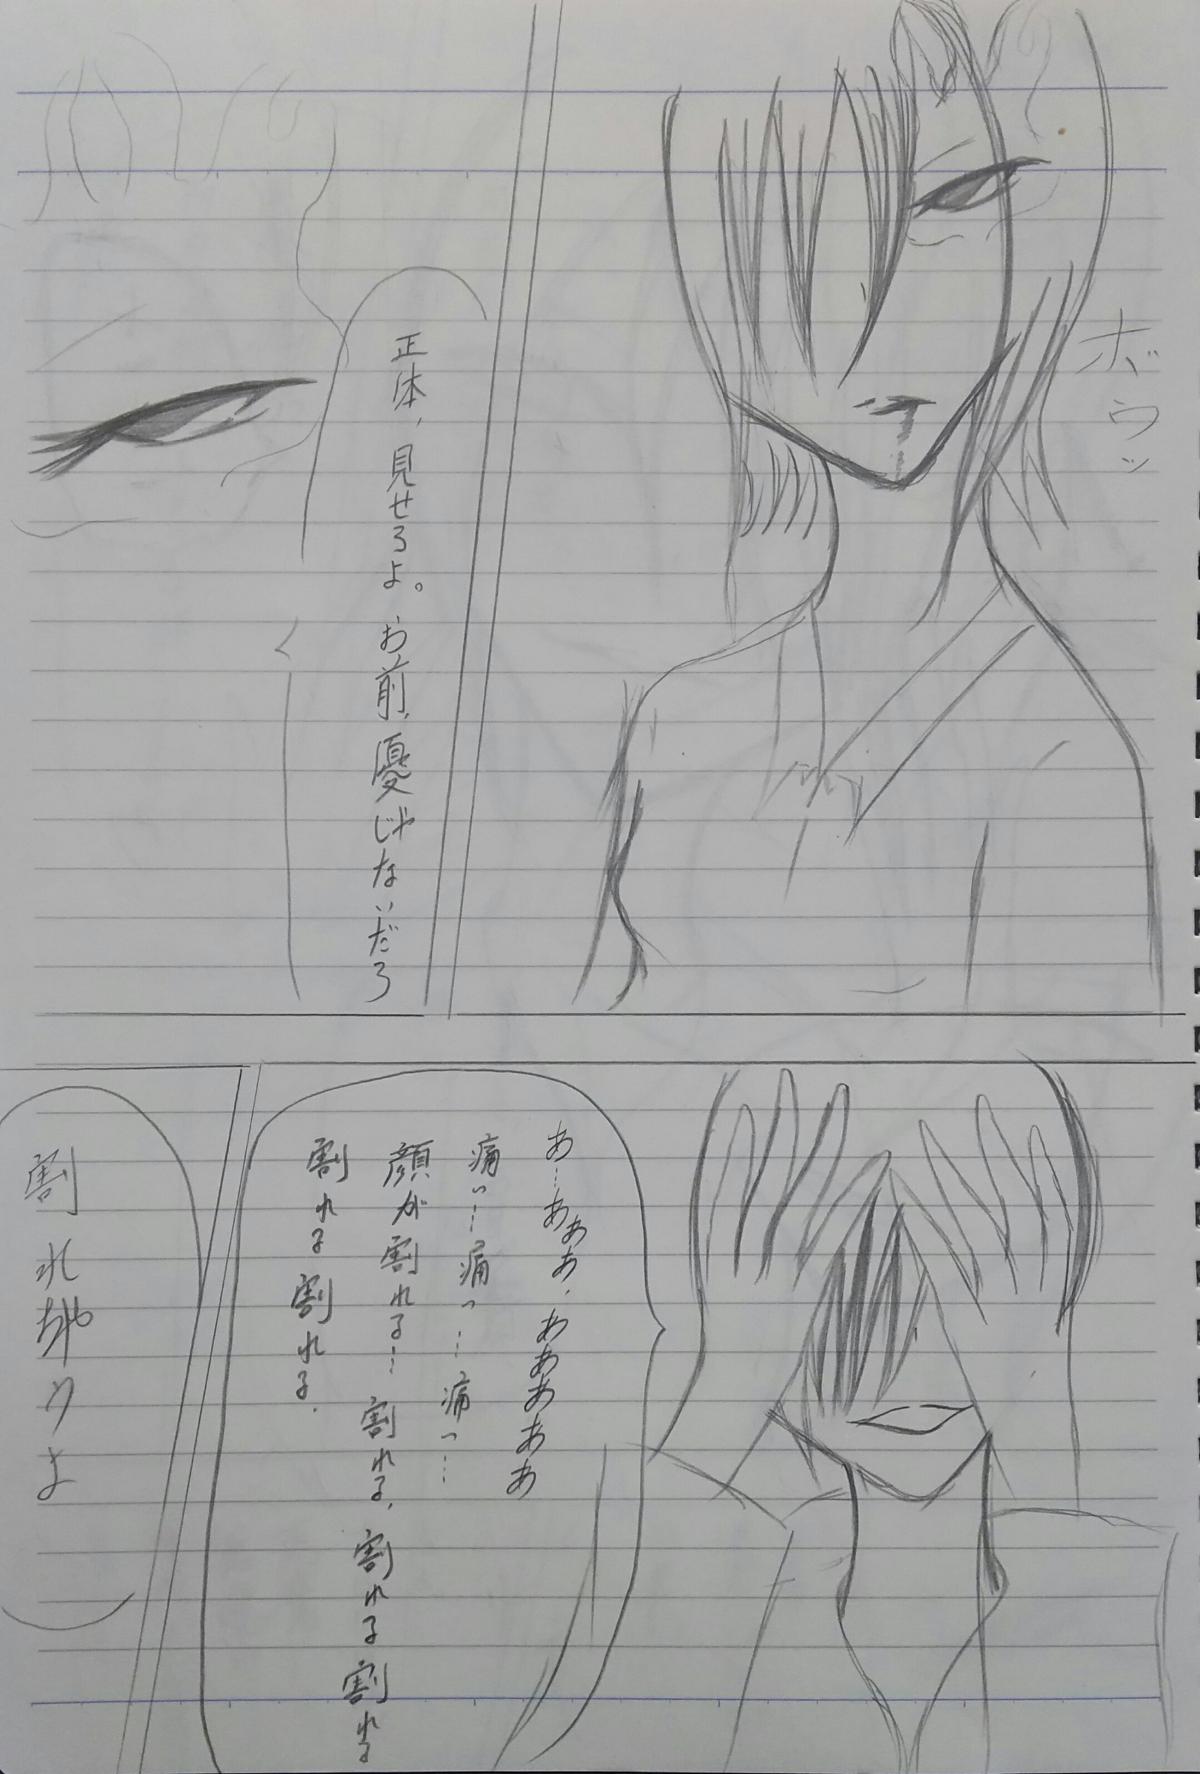 ボウッ
正体、見せろよ。お前、優じゃないだろ
あ…あああ、ああああああ
痛い…痛っ…痛っ…
顔が割れる…割れる、割れる割れる
割れる割れる、
割れちゃうよ